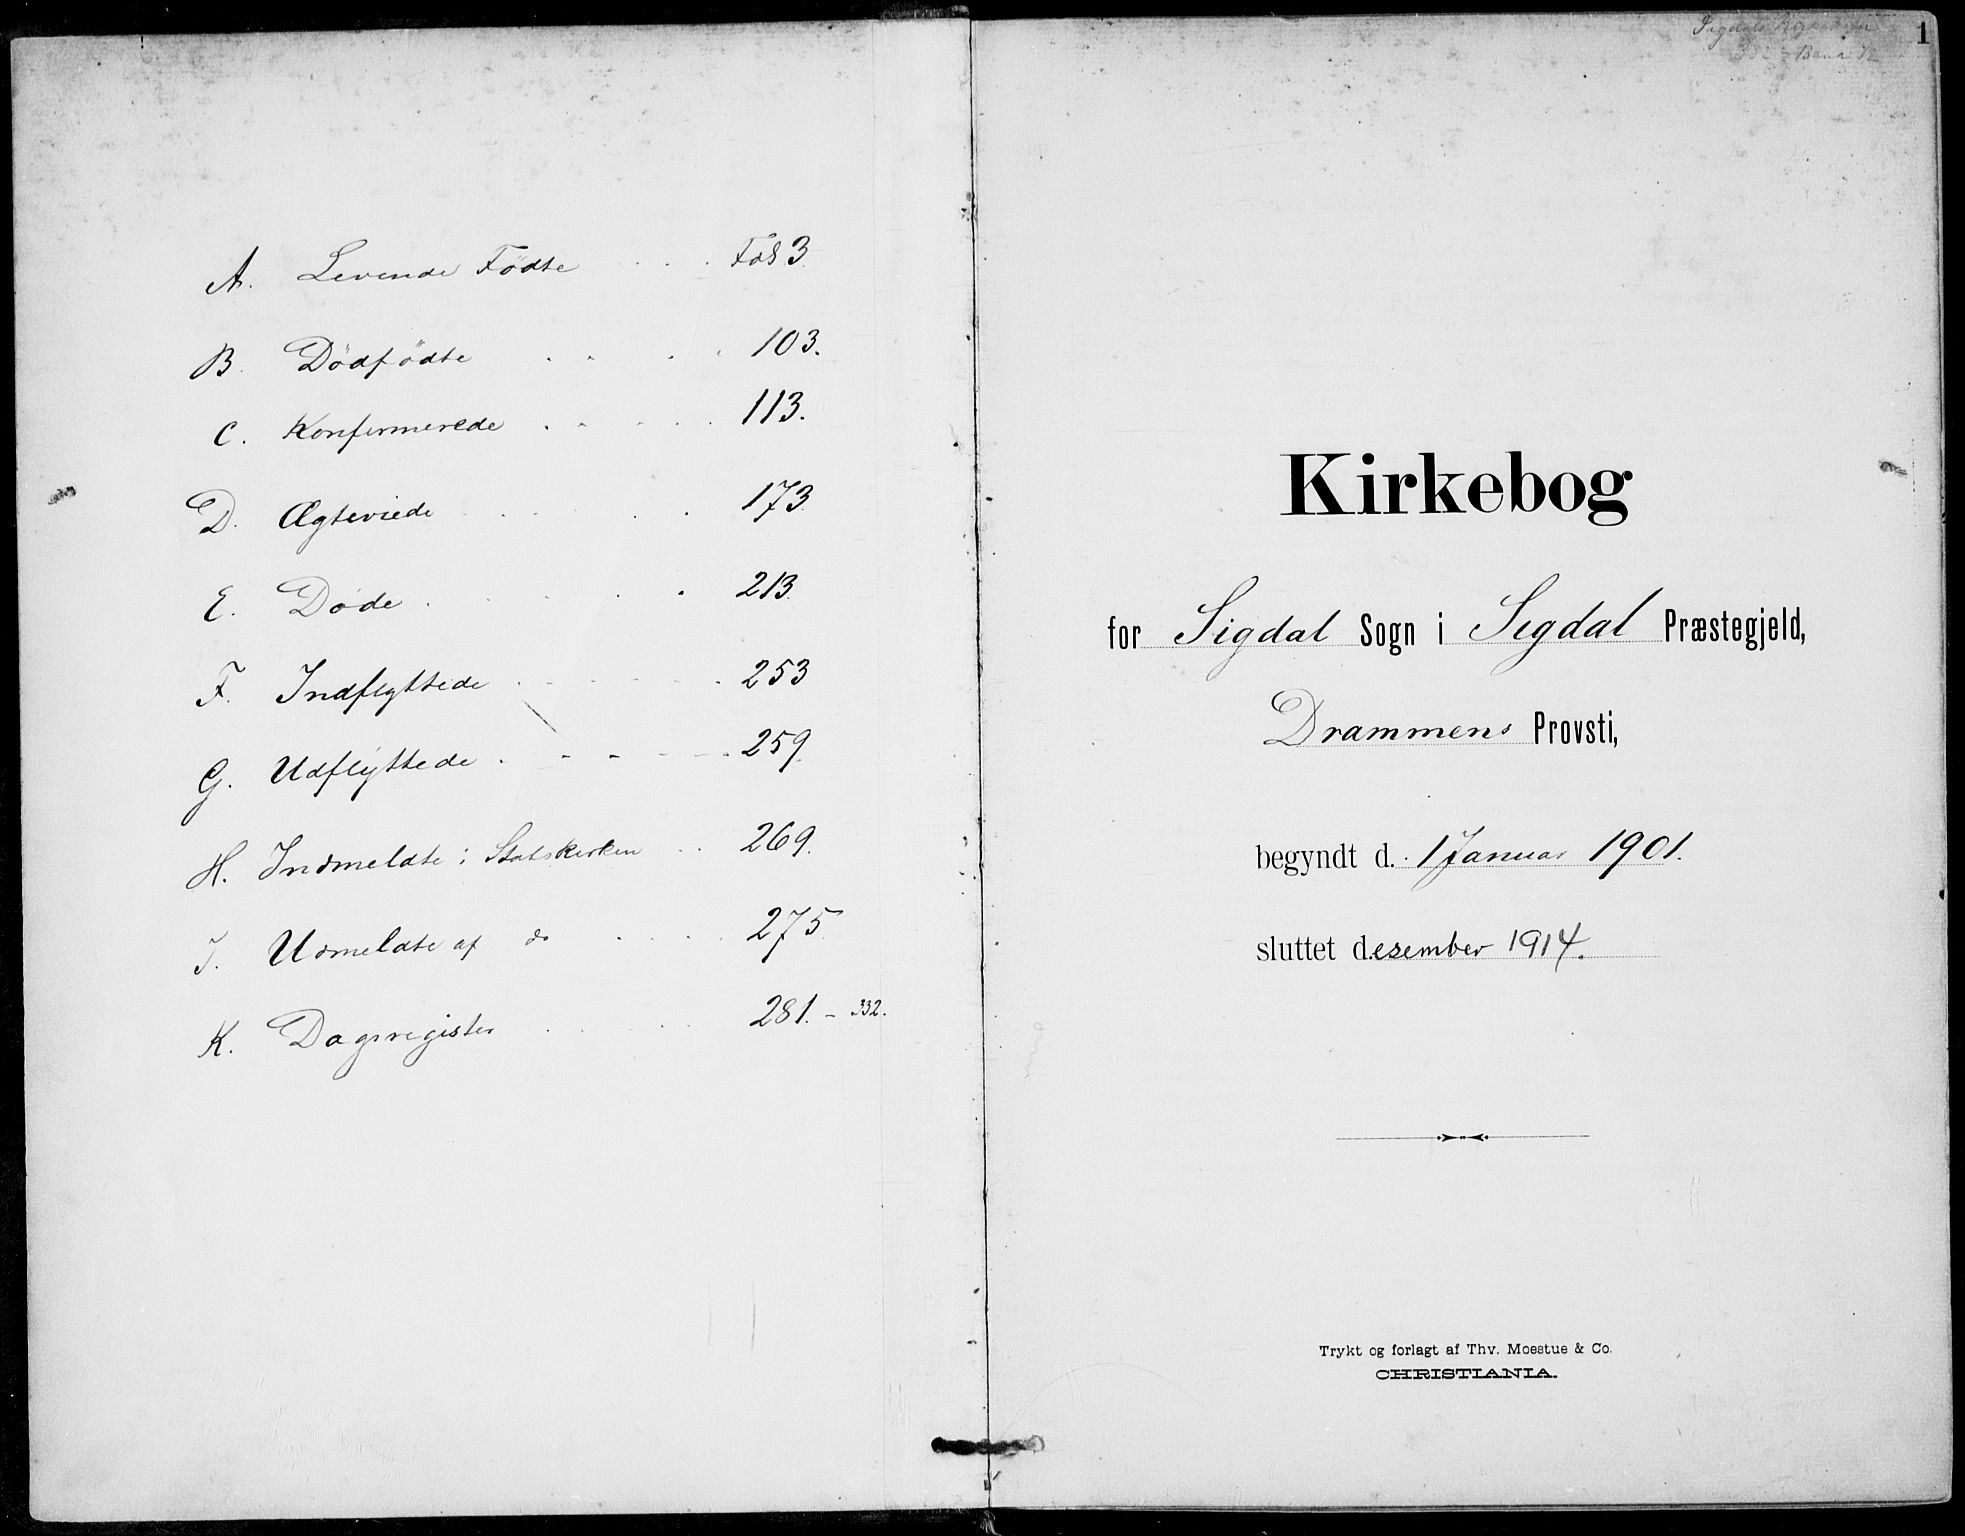 A. Levende Fødte . . . Fol 3.
B. Dødfødte . . . . 103.
C. Konfirmerede . . . . . 113.
D. Ægteviede . . . . 173.
E. Døde . . . . . 213.
F. Indflyttede . . . . . . 253
G. Udflyttede . - - - - 259.
H. Indmeldte i Statskirken . . 269.
I. Udmeldte af do . . . . 275.
K. Dagsregister . . . . 281. - 332.
1
Kirkebog
for Sigdal Sogn i Sigdal Præstegjeld,
Drammens Provsti,
begyndt d. 1 Januar 1901.
sluttet desember 1914.
Trykt og forlagt af Thv. Moestue & Co.
CHRISTIANIA.